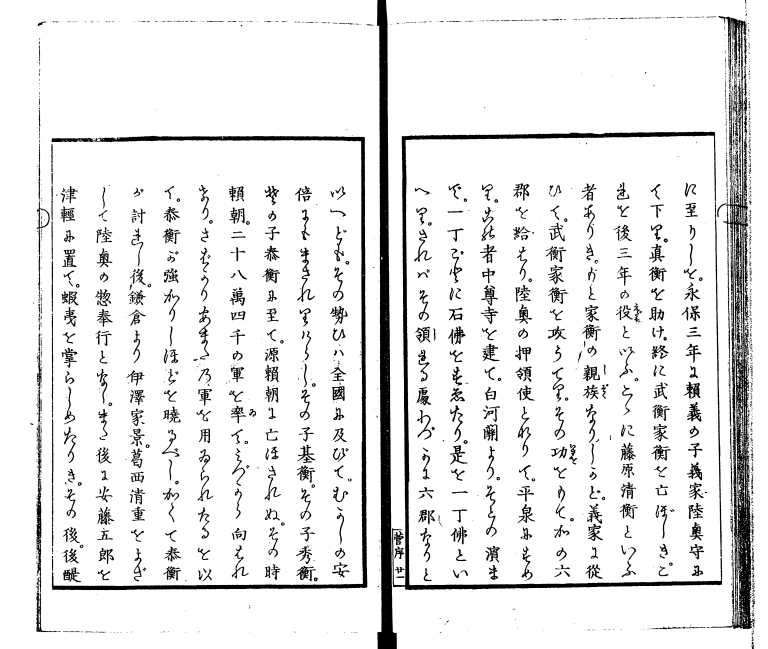 に至りしを。永保三年に頼義の子義家陸奥守に
て下り。真衡を助け。終に武衡家衡を亡ぼしき。こ
れを後三年の役といふ。こゝに藤原清衡といふ
者ありき。もと家衡の親族なりしかど。義家に従
ひて。武衡家衡を攻うてり。その功をもて。かの六
郡を給はり。陸奥の押領使となりて。平泉にすめ
り。この者中尊寺を建て。白河關より。そとの濱ま
で。一丁ごとに石佛をすゑたり。是を一丁佛とい
へり。されバその領せる處わづかに六郡なりと
菅序 廿一
以へども。その勢ひハ全國に及びて。むかしの安
倍にもまされりけらし。その子基衡。その子秀衡。
その子泰衡に至て。源頼朝に亡ほされぬ。その時
頼朝。二十八萬四千の軍を率て。みづから向はれ
たり。さばかりあまたの軍を用ゐられたるを以
て。泰衡が強かりしほどを曉るべし。かくて泰衡
が討れし後。鎌倉より伊澤家景。葛西清重をよざ
して陸奥の惣奉行となし。また後に安藤五郎を
津輕に置て。蝦夷を掌らしめたりき。その後。後醍